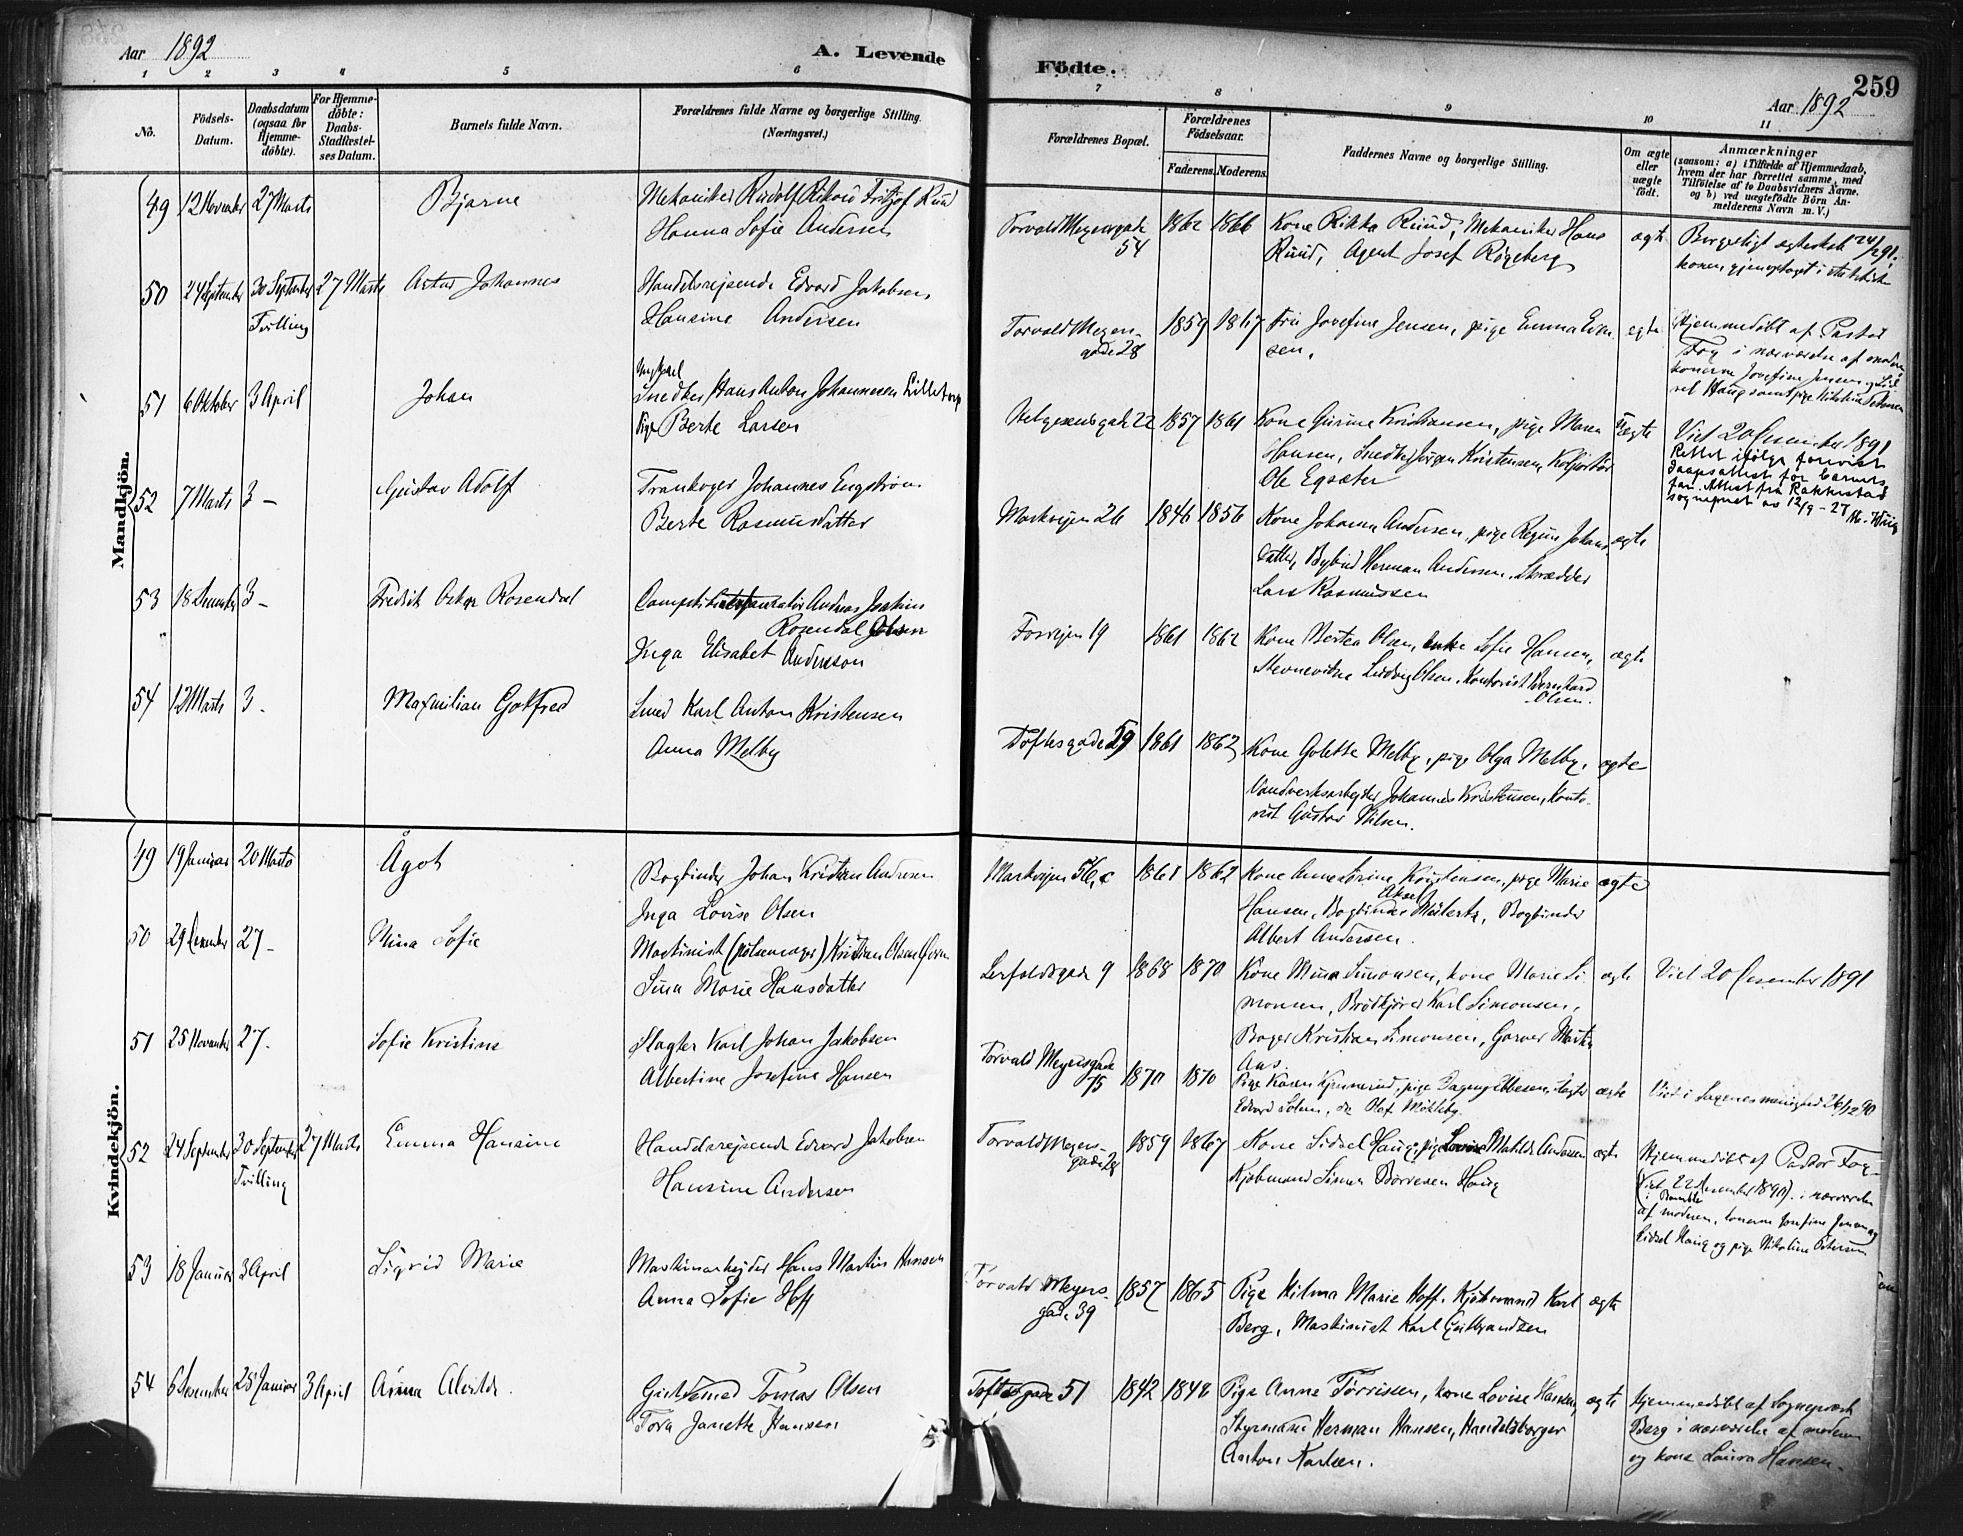 Aar 1892
A. Levende
Födte.
259
Aar 1892
1 2 3 4 5 6 7 8 9 10 11
No.
Födsels-
Datum.
Daabsdatum
(ogsaa for
Hjemme-
döbte).
For Hjemme-
döbte:
Daabs-
Stadfæstel-
ses Datum.
Barnets fulde Navn.
Forældrenes fulde Navne og borgerlige Stilling.
(Næringsvei.)
Forældrenes Bopæl.
Forældrenes
Födselsaar.
Faderens. Moderens.
Faddernes Navne og borgerlige Stilling.
Om ægte
eller
uægte
födt.
Anmærkninger
(saasom: a) i Tilfælde af Hjemmedaab,
hvem der har forrettet samme, med
Tilföielse af to Daabsvidners Navne,
og b) ved uægtefödte Börn An-
melderens Navn m. V.)
Mandkjön.
49 12 November 27 Marts Bjarne Mekaniker Rudolf Fritjof Ruud
Hanna Sofie Andersen
Torvald Meyersgade 1862 1866 Kone Rikka Ruud, Mekaniker Hans ægte Borgerligt
54 Ruud, Agent Josef Røgeberg
50 24 September 30 September 27 Marts Artur Johannes Handelsrejsende Edvard Jakobsen
Tvilling Hansine Andersen
Torvald Meyers- 1859 1867 Fru Josefine Jensen, pige Emma ægte Hjemmedøbt af Pastor
gade 28 sen. Fog i nærværelse af moderen
konerne Josefine Jensen
51 6 Oktober 3 April Johan Ungkarl
Snedker Hans Anton Johannesen Lilletorp
Pige Berte Larsen
Helgesensgade 22 1857 1861 Kone Gurine Kristiansen, pige Maren Uægte Viet 20 Desember 1891
Hansen, Snedker Jørgen Kristensen, Rettet ifølge forevist
Ole Egsæter daapsattest for barnets
far. Attest fra Rakkestad
52 7 Marts 3 - Gustav Adolf Trankoger Johannes Engstrøm
Berte Rasmusdatter
Markvejen 26 1846 1856 Kone Johanne Andersen, pige Regine Johans- ægte
datter, Bybud Herman Andersen, Skrædder
Lars Rasmussen
53 18 Desember 3 - Fredrik Oskar Rosendal Andreas Joakim
Rosendal Olsen
Inga Elisabet Andersson
Fosvejen 19 1861 1862 Kone Bertea Olsen, enke Sofie Hansen, ægte
Stevnevidne Ludvig Olsen, Kontorist Bernhard
Olsen.
54 12 Marts 3 - Maximilian Gotfred Smed Karl Anton Kristensen
Anna Melby
Toftesgade 59 1861 1862 Kone Golette Melby, pige Olga Melby, ægte
Vandverksarbejder Johannes Kristensen, Konto-
rist Gustav Nilsen.
Kvindekjön.
49 19 Januar 20 Marts Ågot Bogbinder Johan Kristian Andresen
Inga Lovise Olsen
Markvejen 56, c 1861 1862 Kone Anne Lovine Kristensen, pige Marie ægte
Hansen, Bogbinder Aksel Mülertz, Bogbinder
Albert Andersen.
50 29 Desember 27 - Mina Sofie Maskinist (pølsemager) Kristian Olsen
Lina Marie Hansdatter
Lerfaldsgade 9 1868 1870 Kone Mina Simonsen, kone Marie Si- ægte Viet 20 Desember 1891
monsen, Brødkjører Karl Simonsen,
Bager Kristian Simonsen, Garver Martin
51 25 November 27 - Sofie Kristine Slagter Karl Johan Jakobsen
Albertine Josefine Hansen
Torvald Meyersgade 75 1870 1870 Pige Karen ægte Viet i Sagenes menighed 26/12 90
Edvard Solem, do Olaf
52 24 September 30 September 27 Marts Emma Hansine Handelsrejsende Edvard Jakobsen
Tvilling Hansine Andersen
Torvald Meyers- 1859 1867 Kone Sidsel Haug, pige Matilde Andersen ægte Hjemmedøbt af Pastor Fog
gade 28 Kjøbmand Simen Børresen Haug (Viet 22 Desember 1890 i Bamble) i nærværelse
af moderen, konerne Josefine Jensen og
Sidsel Haug og pige Nikoline Petersen
53 18 Januar 3 April Sigrid Marie Maskinarbejder Hans Martin Hansen
Anna Sofie Hoff
Torvald Meyers- 1857 1865 Pige Hilma Marie Hoff, Kjøbmand Karl ægte
gade 39 Berg, Maskinist Karl Gulbrandsen
54 6 Desember 28 Januar 3 April Anna Alvilde Tomas Olsen
Tora Janette Hansen
Toftesgade 51 1842 1848 Pige Anne Tørrissen, kone Lovise Hansen, ægte Hjemmedøbt af Sogneprest
Styrmand Herman Hansen, Handelsborger Berg i nærværelse af moderen
Anton Karlsen. og kone Laura Hansen.